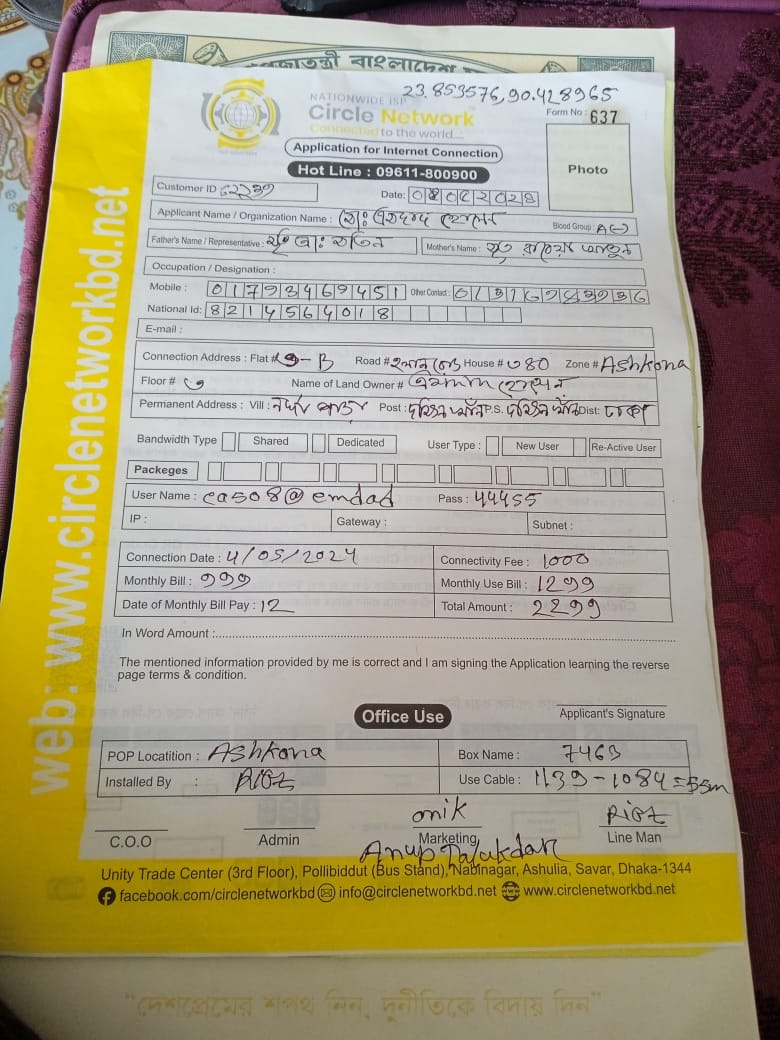 প্রজাতন্ত্রী বাংলাদেশ
23.853576,90.428965
NATIONWIDE ISP
Circle Network
Connected to the world....
Form No : 637
Application for Internet Connection
Hot Line : 09611-800900
Photo
Customer ID
Date:
Applicant Name / Organization Name : মোঃ এমদাদ হোসেন
Blood Group : A(-)
Father's Name / Representative :
Mother's Name : মৃত
Occupation / Designation :
Mobile : 01793469451 Other Contact :
National Id: 8214564018
E-mail :
Connection Address : Flat # ৩-B Road # House # ৩৪০ Zone # Ashkona
Floor # ৩ Name of Land Owner #
Permanent Address : Vill : Post : P.S. Dist: ঢাকা
Bandwidth Type Shared Dedicated User Type : New User Re-Active User
Packeges
User Name : ca508@emdad Pass : 44455
IP : Gateway : Subnet :
Connection Date : 4/05/2024 Connectivity Fee : 1000
Monthly Bill : 999 Monthly Use Bill : 1299
Date of Monthly Bill Pay : 12 Total Amount : 2299
In Word Amount :
The mentioned information provided by me is correct and I am signing the Application learning the reverse
page terms & condition.
Office Use
Applicant's Signature
POP Locatition : Ashkona Box Name : 7463
Installed By : Use Cable : 1139-1084=55m
onik
C.O.O Admin Marketing Line Man
Anup Talukdar
Unity Trade Center (3rd Floor), Pollibiddut (Bus Stand), Nabinagar, Ashulia, Savar, Dhaka-1344
facebook.com/circlenetworkbd info@circlenetworkbd.net www.circlenetworkbd.net
web: www.circlenetworkbd.net
"দেশপ্রেমের শপথ নিন, দুর্নীতিকে বিদায় দিন"